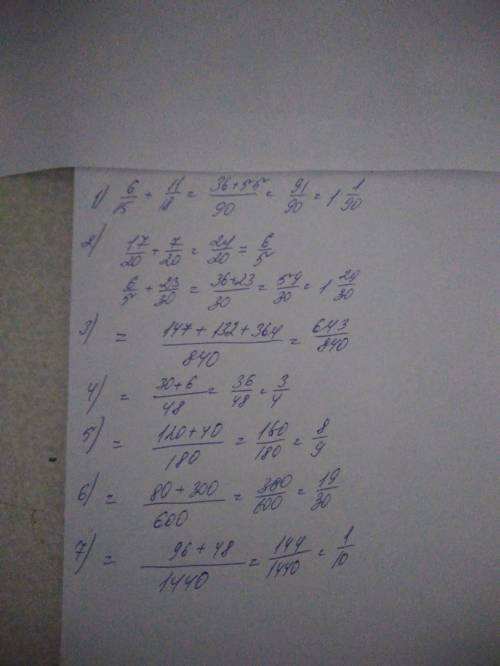 1) 6/15 + 11/18 = 36+55/90 = 91/90 = 1 1/90
2) 17/20 + 7/20 = 24/20 = 6/5
6/5 + 23/30 = 36+23/30 = 59/30 = 1 29/30
3) = 147+132+364/840 = 643/840
4) = 30+6/48 = 36/48 = 3/4
5) = 120+40/180 = 160/180 = 8/9
6) = 80+300/600 = 380/600 = 19/30
7) = 96+48/1440 = 144/1440 = 1/10